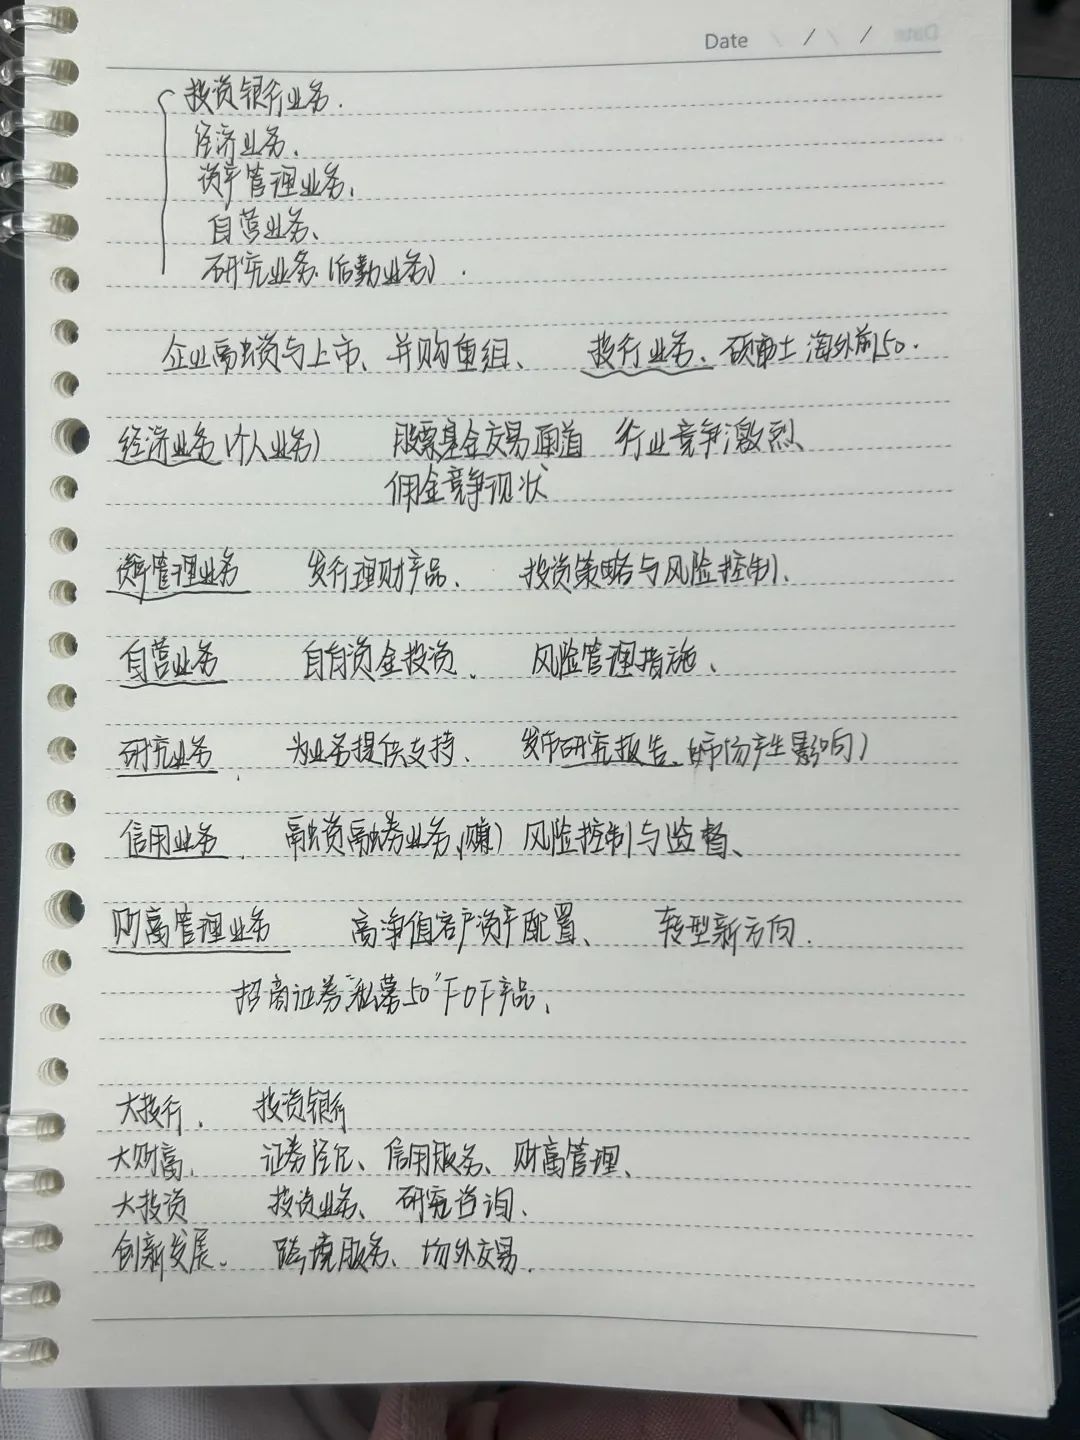 Date / / /
投资银行业务.
经济业务、
资产管理业务、
自营业务、
研究业务(后勤业务).
企业融资与上市、并购重组、 投行业务、硕博士 海外前50.
经济业务(个人业务) 股票基金交易通道 行业竞争激烈、
佣金竞争现状
资产管理业务 发行理财产品、 投资策略与风险控制、
自营业务 自有资金投资、 风险管理措施、
研究业务、 为业务提供支持、 发布研究报告、(市场产生影响)
信用业务、 融资融券业务、(赚) 风险控制与监督、
财富管理业务 高净值客户资产配置、 转型新方向.
招商证券"私募50"FOF产品、
大投行、 投资银行
大财富、 证券经纪、信用服务、财富管理、
大投资 投资业务、研究咨询、
创新发展、 跨境服务、场外交易.